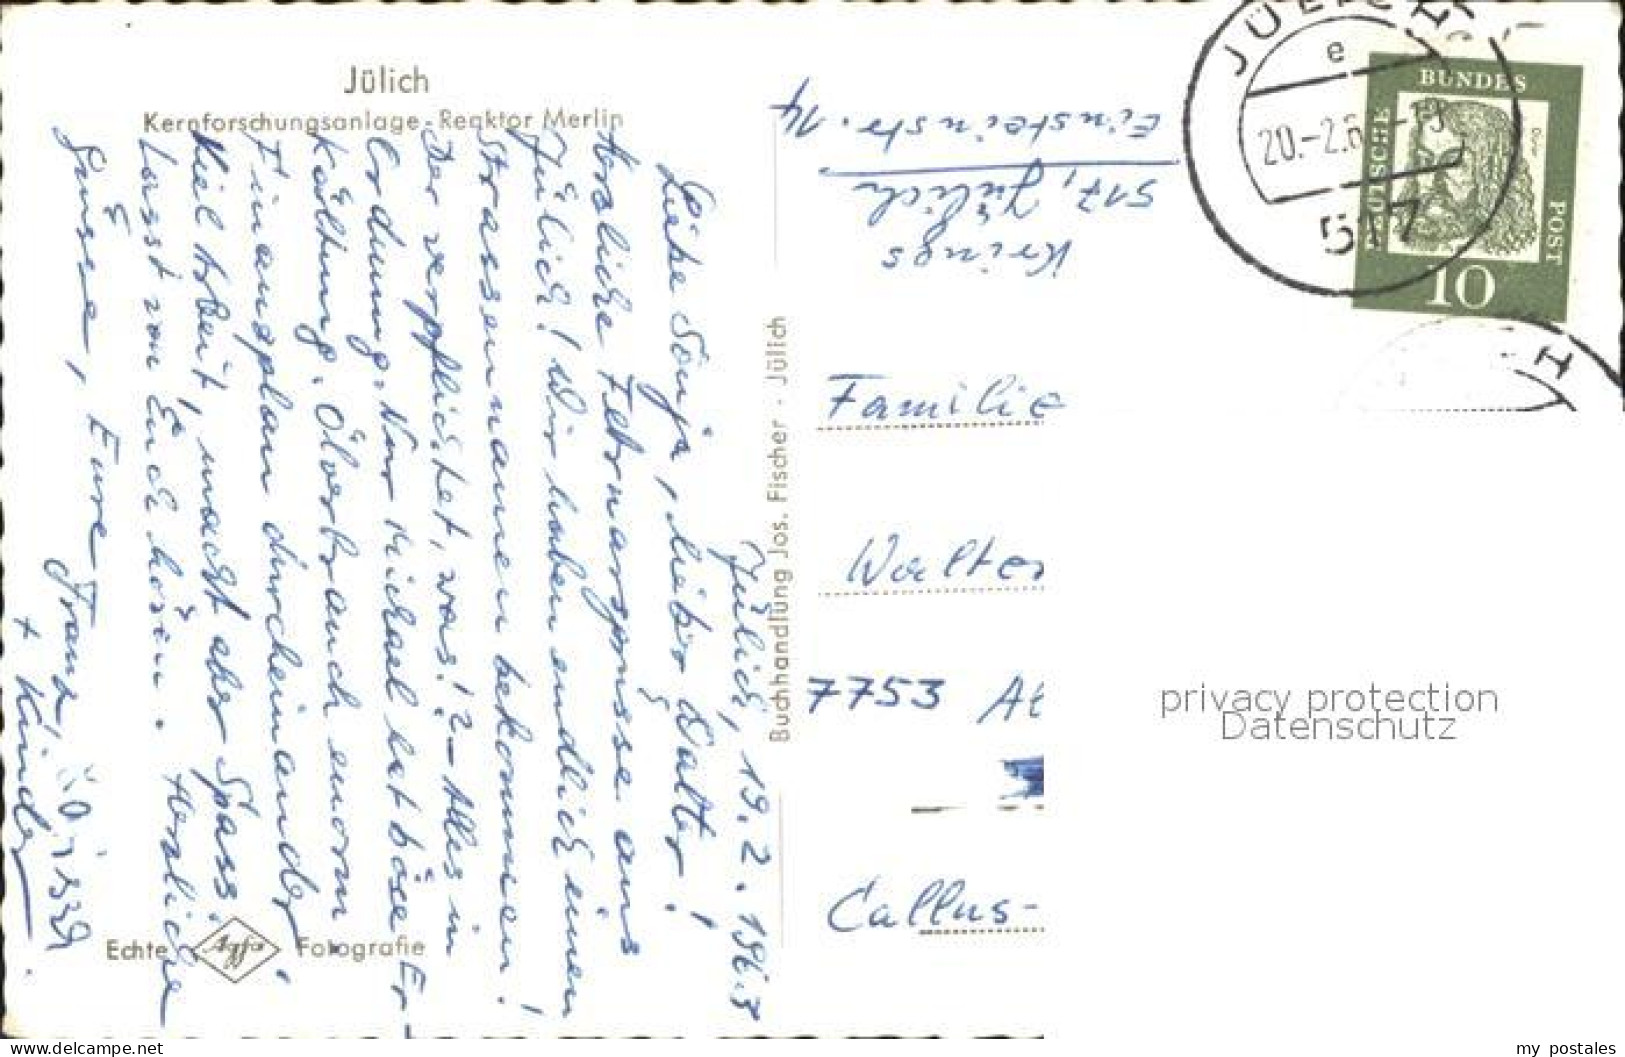 Jülich
Kernforschungsanlage - Reaktor Merlin
Jülich, 19. 2. 196
Liebe Sonja, lieber Walter!
Herzliche Februargrüsse aus
Jülich! Wir haben endlich einen
Strassennamen bekommen!
Der verpflichtet, was!? – Alles in
Ordnung. Nur Michael hat böse Er-
kältung. Ölverbrauch enorm,
Finanzplan durcheinander,
Viel Arbeit, macht aber Spass.
Lasst von Euch hören. Herzliche
Grüsse, Eure Franz,
+ Kinder.
Echte Agfa Fotografie
Buchhandlung Jos. Fischer - Jülich
Krings
517, Jülich
Einsteinstr. 14
JÜLICH
e
20.-2.6
517
DEUTSCHE
BUNDES
POST
10
H
Familie
Walter
7753 Al
Callus-
privacy protection
Datenschutz
www.delcampe.net
my_postales